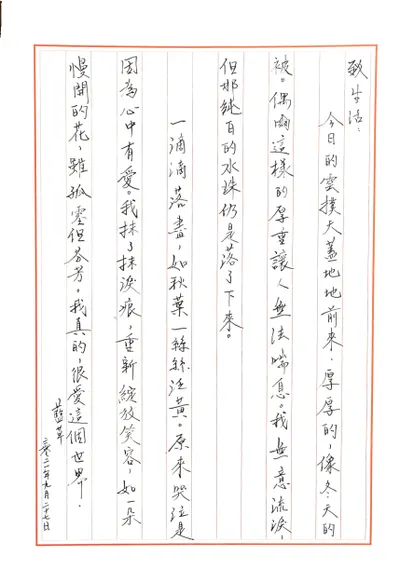 致生活：
今日的雲撲天蓋地地前來．厚厚的，像冬天的
被。偶爾這樣的厚重讓人無法喘息。我無意流淚，
但那純白的水珠仍是落了下來。
一滴滴落盡，如秋葉一絲絲泛黃。原來哭泣是
因為心中有愛。我抹了抹淚痕，重新綻放笑容，如一朵
慢開的花，雖孤零但芬芳。我真的，很愛這個世界．
藍草
二零二一年九月二十七日